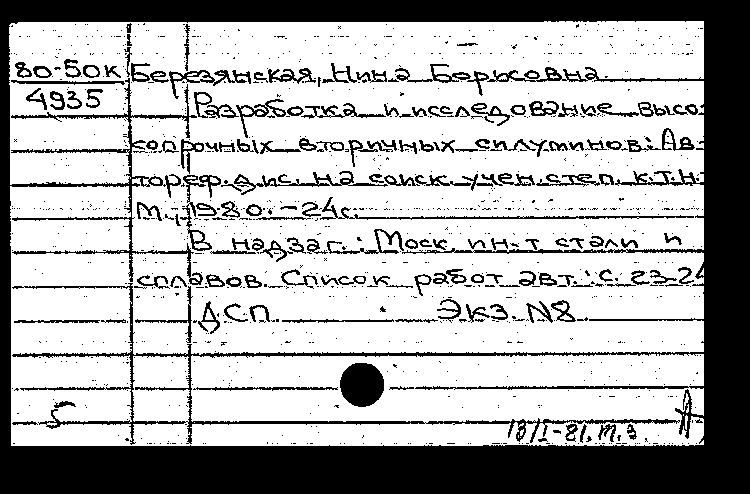 80-50к Березянская, Нина Борисовна.
4935 Разработка и исследование высо-
копрочных вторичных силуминов: Ав-
тореф. дис. на соиск. учен. степ. к.т.н.
М., 1980. - 24с.
В надзаг.: Моск. ин-т стали и
сплавов. Список работ авт.: с. 23-24
ДСП. Экз. N8.
5
13/I-81. т.з. А